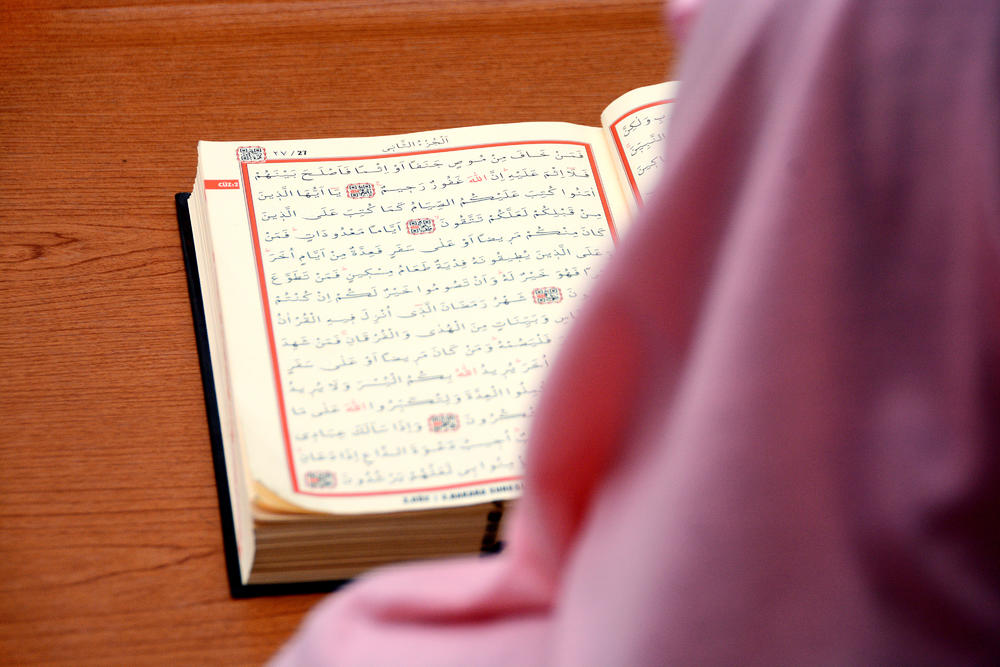 اَلْجُزْءُ الثَّانِى
٢٧ / 27
CÜZ:2
فَمَنْ خَافَ مِنْ مُوصٍ جَنَفًا اَوْ اِثْمًا فَاَصْلَحَ بَيْنَهُمْ
فَلَٓا اِثْمَ عَلَيْهِ اِنَّ اللّٰهَ غَفُورٌ رَحٖيمٌ يَٓا اَيُّهَا الَّذٖينَ
اٰمَنُوا كُتِبَ عَلَيْكُمُ الصِّيَامُ كَمَا كُتِبَ عَلَى الَّذٖينَ
مِنْ قَبْلِكُمْ لَعَلَّكُمْ تَتَّقُونَ اَيَّامًا مَعْدُودَاتٍ فَمَنْ
كَانَ مِنْكُمْ مَرٖيضًا اَوْ عَلٰى سَفَرٍ فَعِدَّةٌ مِنْ اَيَّامٍ اُخَرَ
وَعَلَى الَّذٖينَ يُطٖيقُونَهُ فِدْيَةٌ طَعَامُ مِسْكٖينٍ فَمَنْ تَطَوَّعَ
فَهُوَ خَيْرٌ لَهُ وَاَنْ تَصُومُوا خَيْرٌ لَكُمْ اِنْ كُنْتُمْ
شَهْرُ رَمَضَانَ الَّذٖٓى اُنْزِلَ فٖيهِ الْقُرْاٰنُ
وَبَيِّنَاتٍ مِنَ الْهُدٰى وَالْفُرْقَانِ فَمَنْ شَهِدَ
فَلْيَصُمْهُ وَمَنْ كَانَ مَرٖيضًا اَوْ عَلٰى سَفَرٍ
اُخَرَ يُرٖيدُ اللّٰهُ بِكُمُ الْيُسْرَ وَلَا يُرٖيدُ
الْعِدَّةَ وَلِتُكَبِّرُوا اللّٰهَ عَلٰى مَا
وَاِذَا سَاَلَكَ عِبَادٖى
اُجٖيبُ دَعْوَةَ الدَّاعِ اِذَا دَعَانِ
بٖى لَعَلَّهُمْ يَرْشُدُونَ
2.CÜZ / 2.BAKARA SURESİ